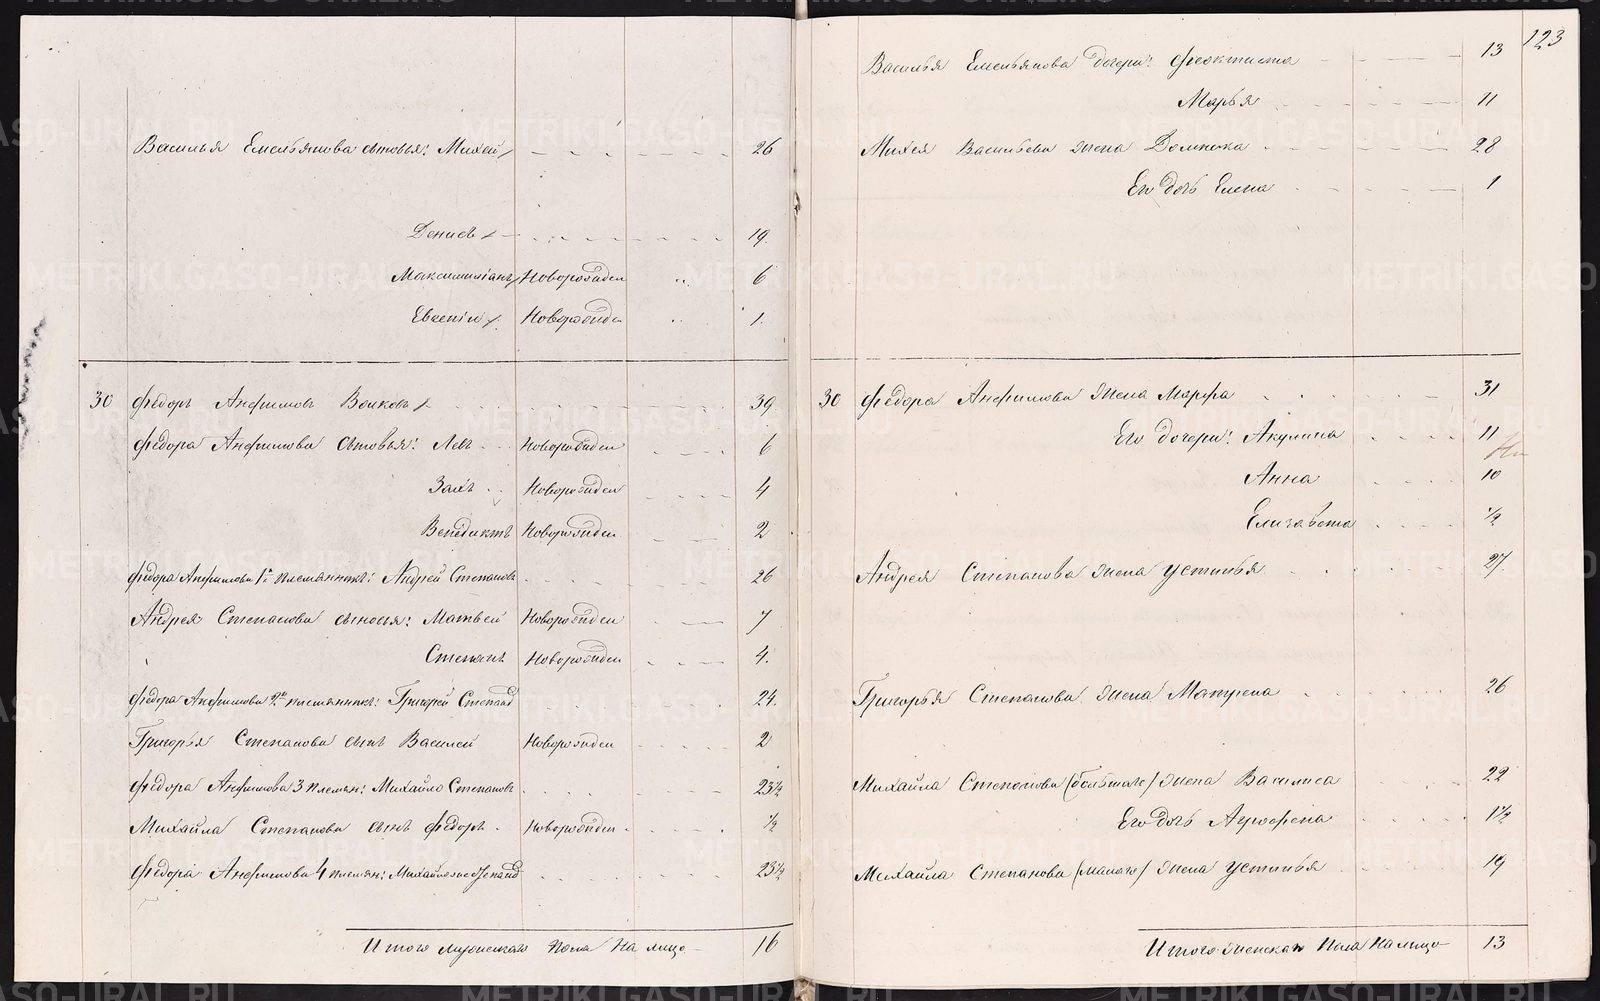 Василья Емельянова сыновья: Михей 26
Денисъ 19.
Максимиліанъ Новорожден 6
Евгеній Новорожден 1.
30 Федоръ Анфимовъ Волковъ 39
Федора Анфимова сыновья: Левъ Новорожден 6
Новорожден 4
Венедиктъ Новорожден 2
Федора Анфимова 1й племянникъ: Андрей Степановъ 26
Андрея Степанова сыновья: Матвей Новорожден 7
Степанъ Новорожден 4.
Федора Анфимова 2й племянникъ: Григорей Степанов 24.
Григорья Степанова сынъ Василей Новорожден 2
Федора Анфимова 3 племян: Михайло Степановъ 23½
Михайла Степанова сынъ Федоръ Новорожден ½
Федора Анфимова 4 племян: Михайло 23½
Итого мужескаго пола на лицо 16
123
Василья Емельянова дочери: Феоктиста 13
Марья 11
Михея Васильева жена Домника 28
Его дочь Елена 1
30 Федора Анфимова жена Марфа 31
Его дочери: Акулина 11
Анна 10
Елизавета ½
Андрея Степанова жена Устинья 27
Григорья Степанова жена Макрена 26
Михайла Степанова (большаго) жена Василиса 22
Его дочь Агрофена 1½
Михайла Степанова (малаго) жена Устинья 19
Итого женскаго пола на лицо 13
METRIKI.GASO-URAL.RU